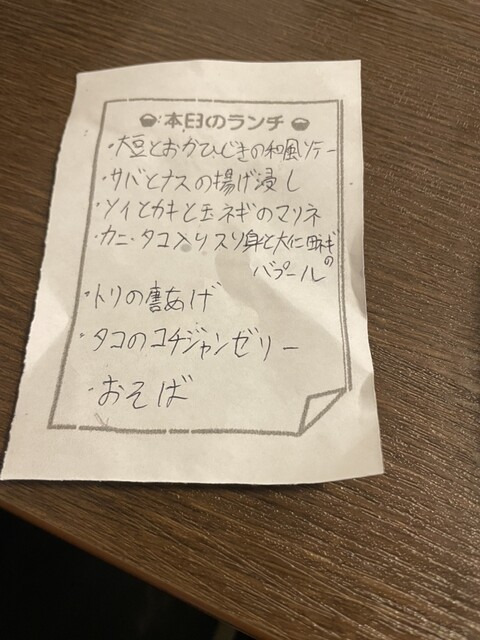 本日のランチ
・大豆とおかひじきの和風ソテー
・サバとナスの揚げ浸し
・ソイとカキと玉ネギのマリネ
・カニ・タコ入りスリ身と大仁田ネギの
バプール
・トリの唐あげ
・タコのコチジャンゼリー
・おそば